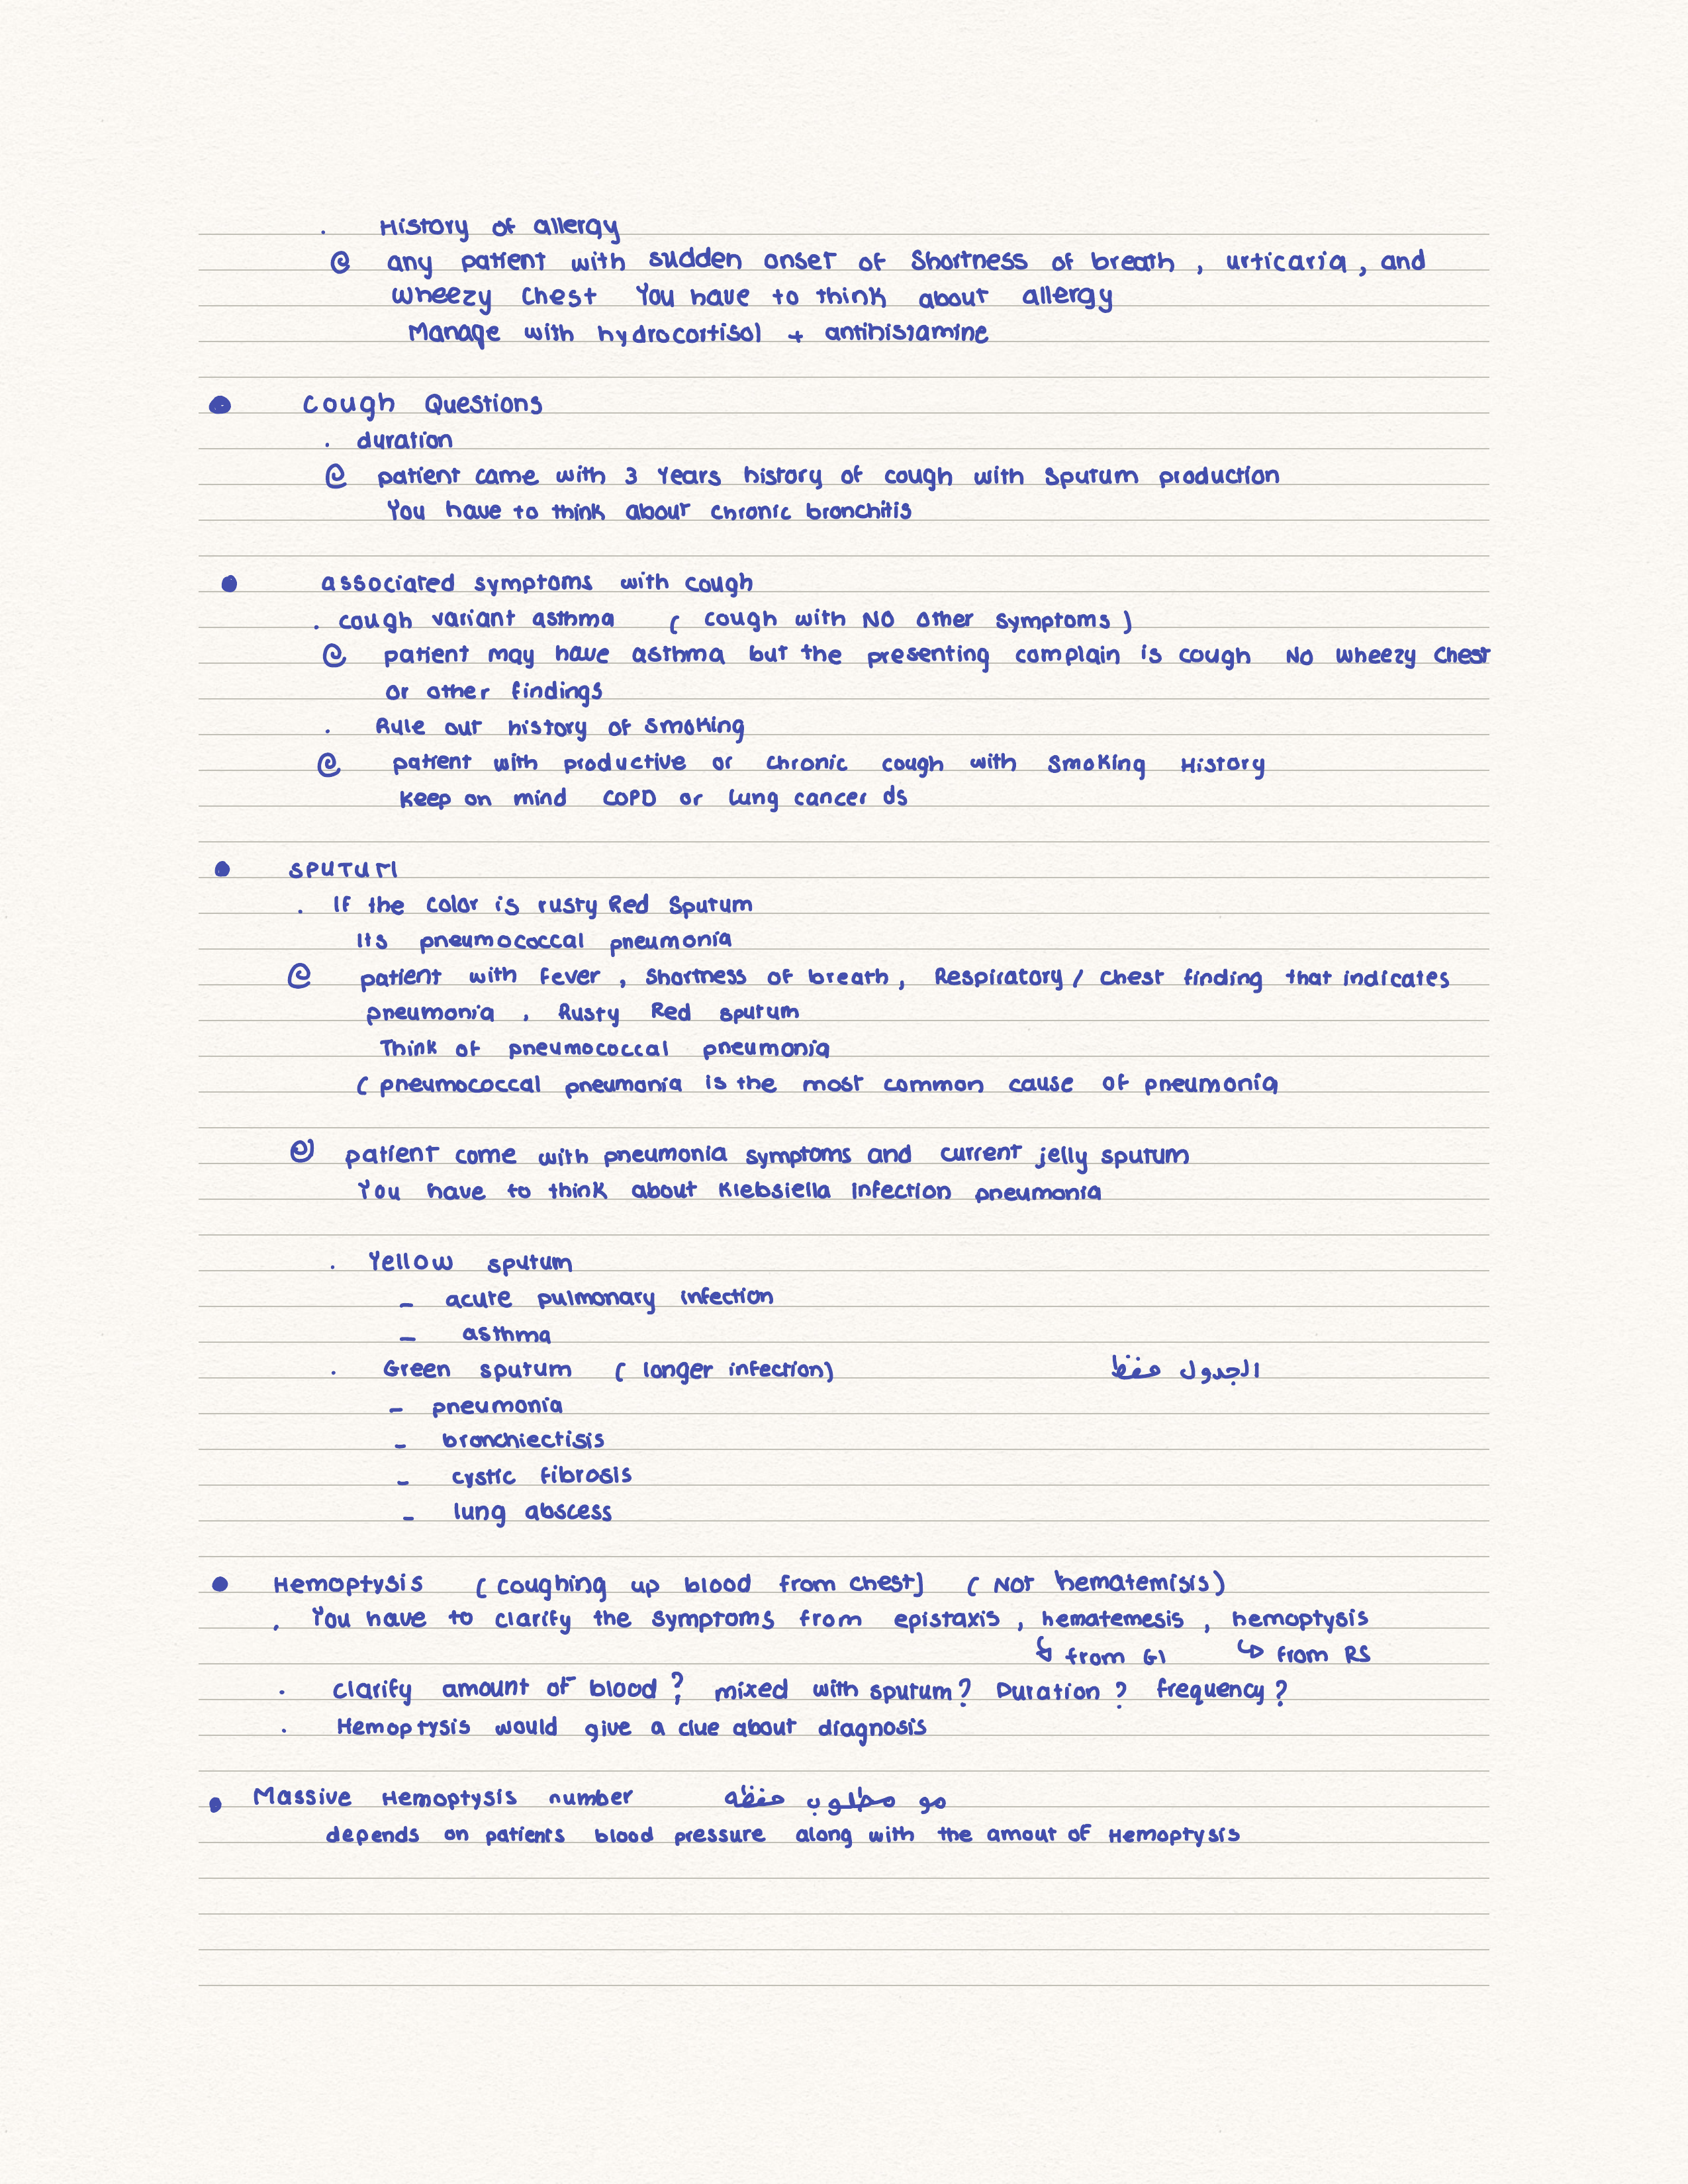 . History of allergy
@ any patient with sudden onset of Shortness of breath , urticaria , and
wheezy Chest You have to think about allergy
Manage with hydrocortisol + antihistamine
● Cough Questions
. duration
@ patient came with 3 Years history of cough with Sputum production
You have to think about chronic bronchitis
● associated symptoms with cough
. cough variant asthma ( cough with NO other symptoms )
@ patient may have asthma but the presenting complain is cough No wheezy Chest
or other findings
. Rule out history of smoking
@ patient with productive or chronic cough with Smoking History
Keep on mind COPD or lung cancer ds
● SPUTUM
. If the color is rusty Red Sputum
Its pneumococcal pneumonia
@ patient with fever , shortness of breath , Respiratory / chest finding that indicates
pneumonia , Rusty Red sputum
Think of pneumococcal pneumonia
( pneumococcal pneumonia is the most common cause of pneumonia
@ patient come with pneumonia symptoms and current jelly sputum
You have to think about Klebsiella infection pneumonia
. Yellow sputum
- acute pulmonary infection
- asthma
. Green sputum ( longer infection) الجدول حفظ
- pneumonia
- bronchiectisis
- cystic fibrosis
- lung abscess
● Hemoptysis ( coughing up blood from chest) ( Not hematemisis )
. You have to clarify the symptoms from epistaxis , hematemesis , hemoptysis
↳ from GI ↳ from RS
. clarify amount of blood ? mixed with sputum ? Duration ? frequency ?
. Hemoptysis would give a clue about diagnosis
● Massive Hemoptysis number مو مطلوب حفظه
depends on patients blood pressure along with the amout of Hemoptysis